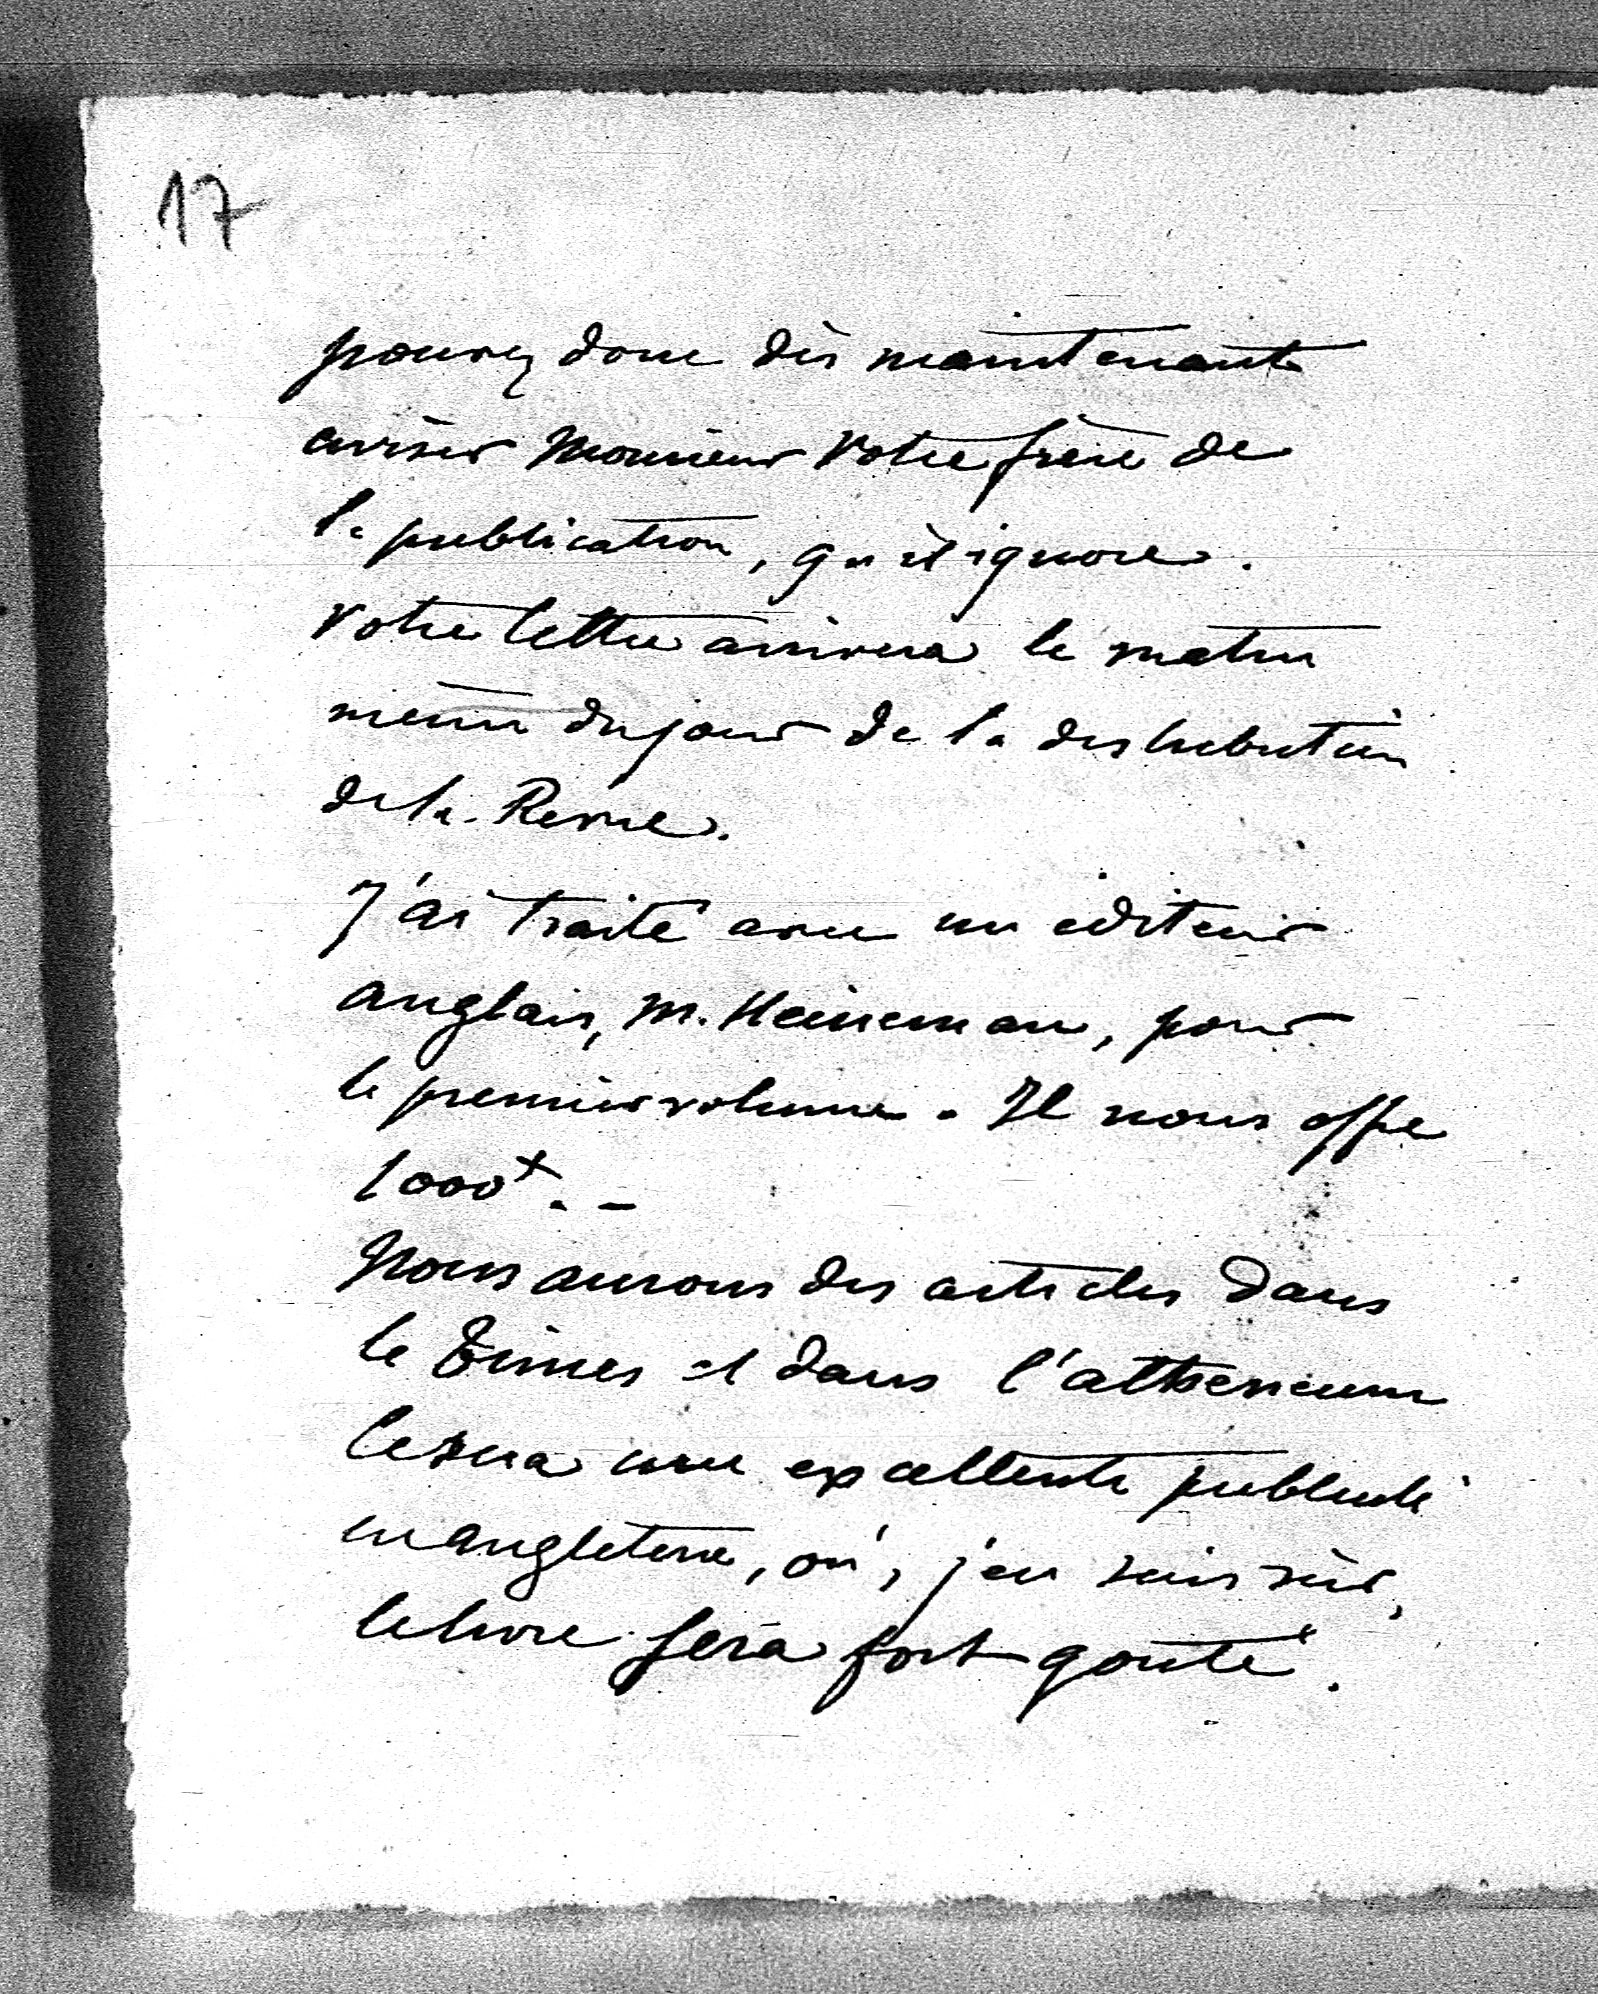 17
pouvez donc dès maintenant
aviser Monsieur Votre frère de
la publication, qu'il ignore.
Votre lettre arrivera le matin
même du jour de la distribution
de la Revue.
J'ai traité avec un éditeur
anglais, M. Heineman, pour
le premier volume. Il nous offre
1000 +. -
Nous aurons des articles dans
le Times et dans l'atheneum
Ce sera une excellente publicité
en angleterre, où, j'en suis sûr,
le livre sera fort goûté.